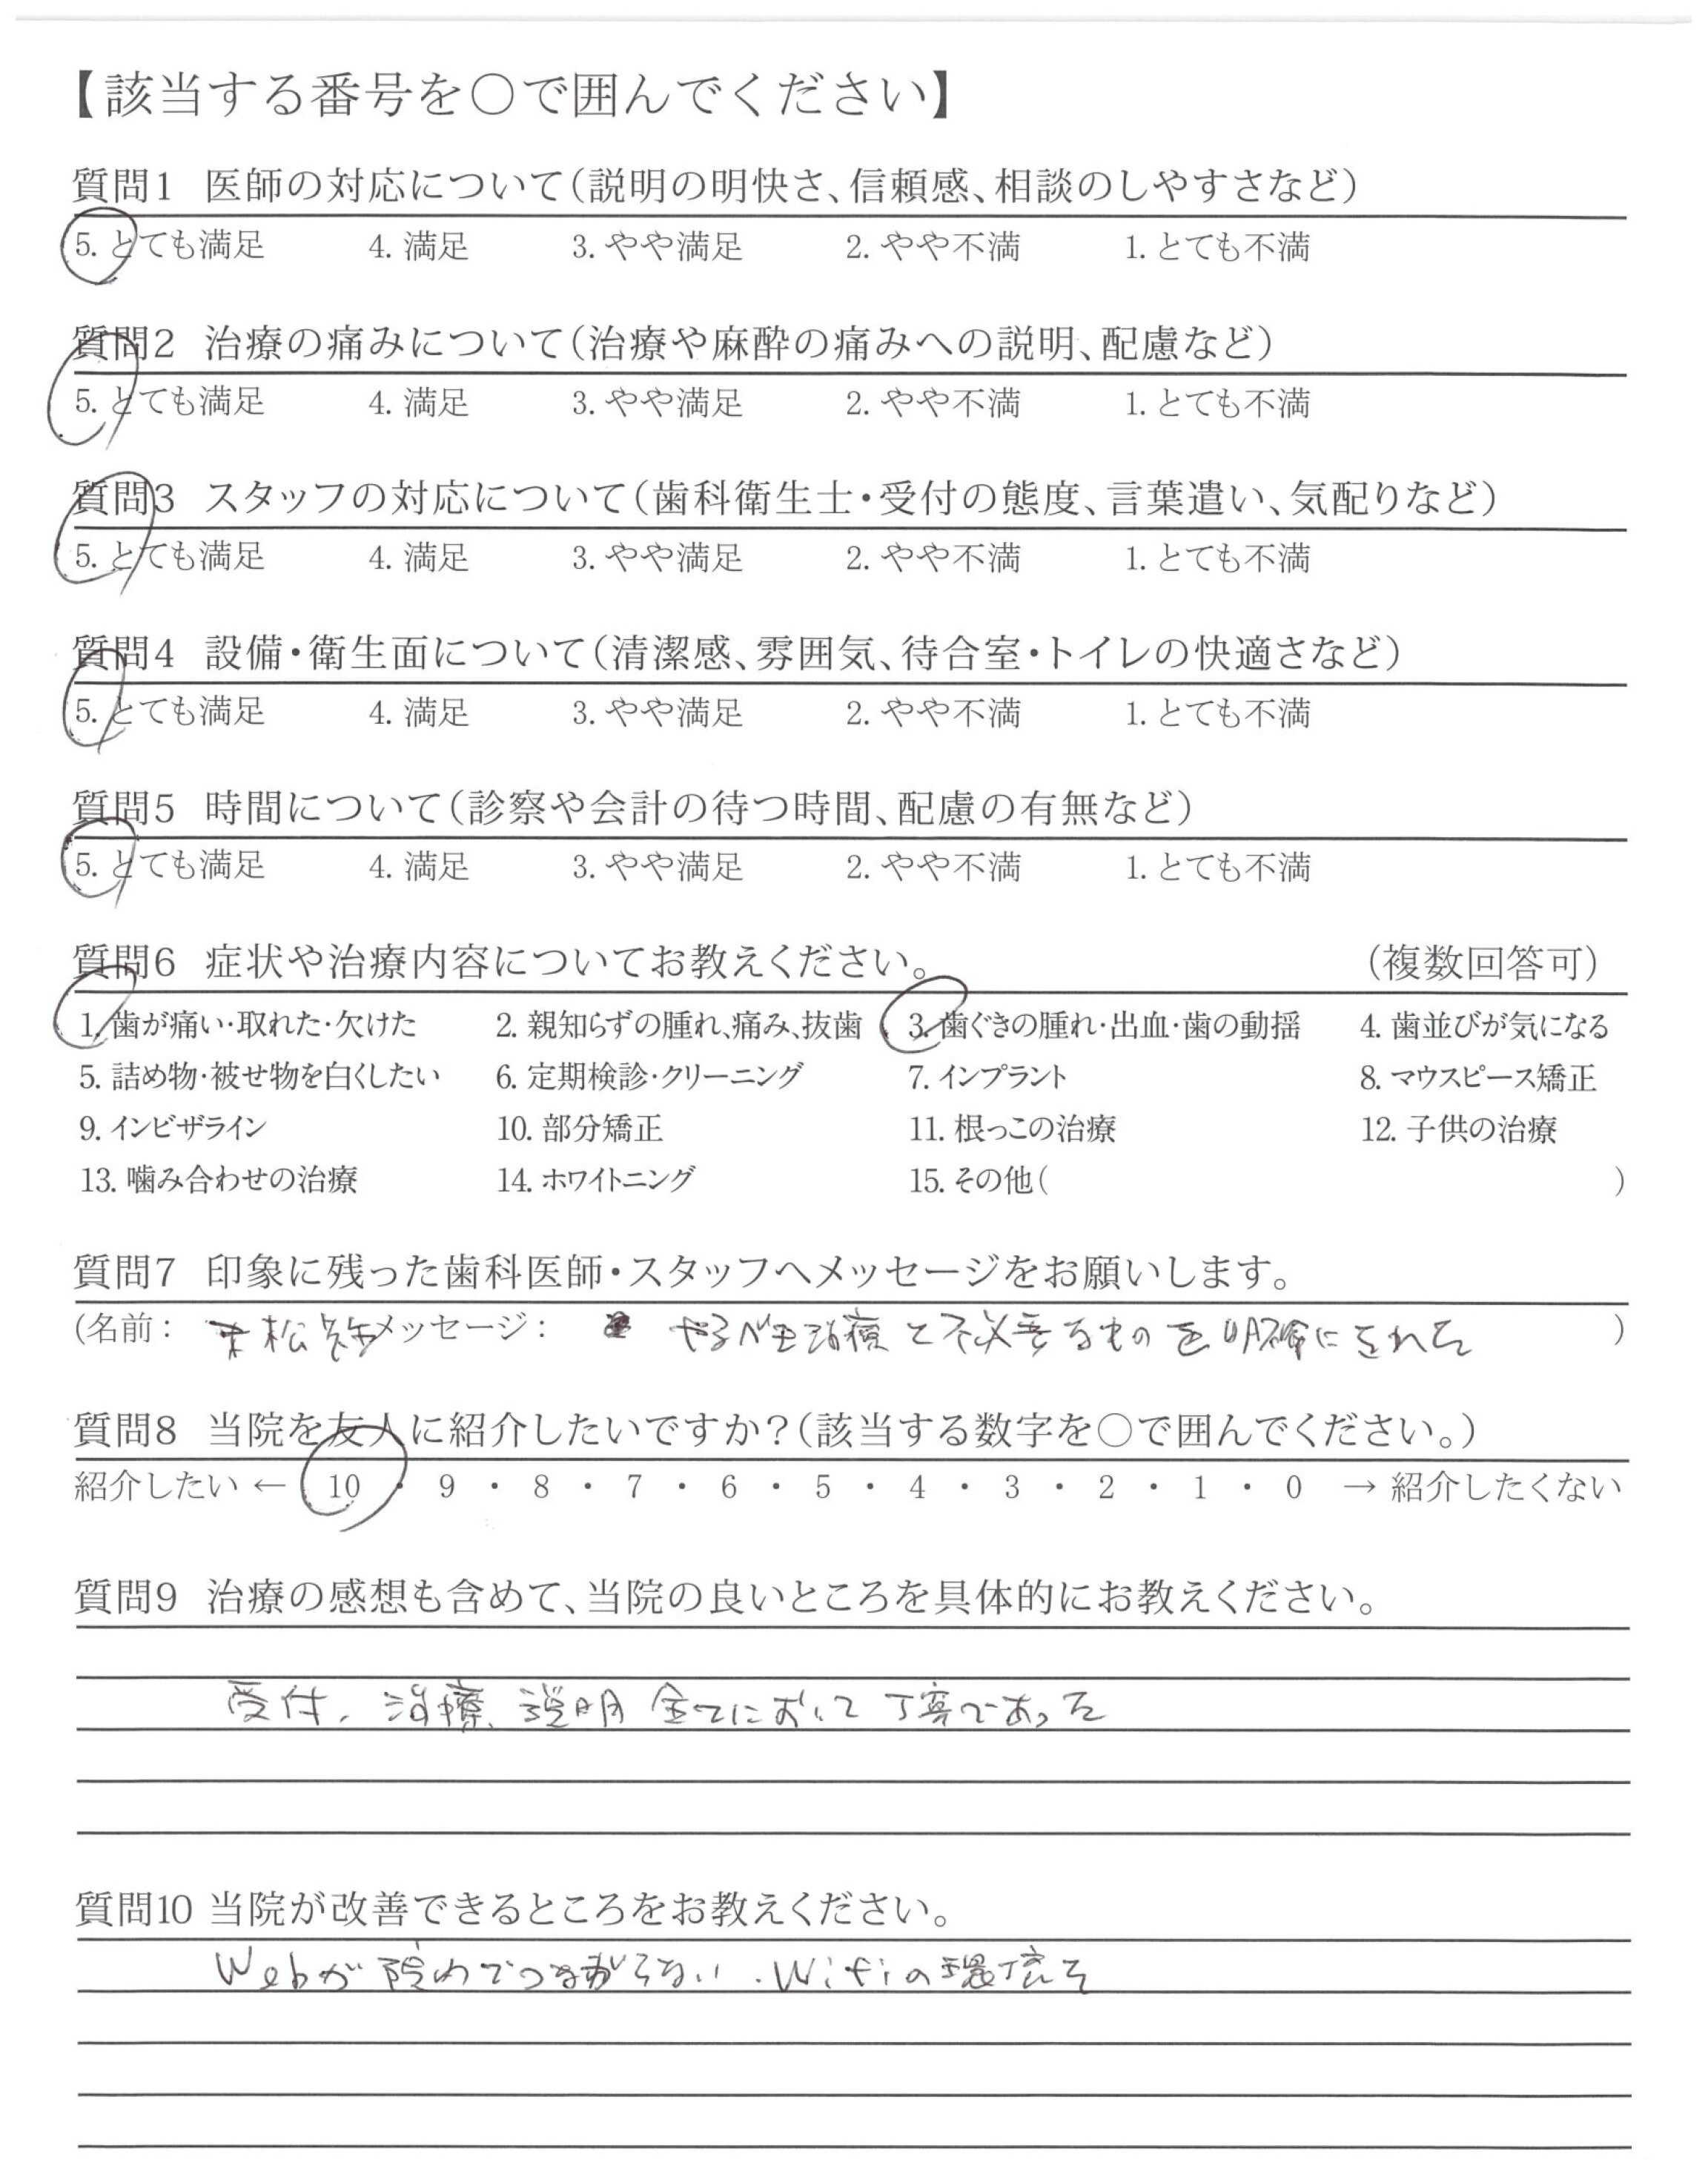 【該当する番号を○で囲んでください】
質問1 医師の対応について(説明の明快さ、信頼感、相談のしやすさなど)
5. とても満足 4. 満足 3. やや満足 2. やや不満 1. とても不満
質問2 治療の痛みについて(治療や麻酔の痛みへの説明、配慮など)
5. とても満足 4. 満足 3. やや満足 2. やや不満 1. とても不満
質問3 スタッフの対応について(歯科衛生士・受付の態度、言葉遣い、気配りなど)
5. とても満足 4. 満足 3. やや満足 2. やや不満 1. とても不満
質問4 設備・衛生面について(清潔感、雰囲気、待合室・トイレの快適さなど)
5. とても満足 4. 満足 3. やや満足 2. やや不満 1. とても不満
質問5 時間について(診察や会計の待つ時間、配慮の有無など)
5. とても満足 4. 満足 3. やや満足 2. やや不満 1. とても不満
質問6 症状や治療内容についてお教えください。 (複数回答可)
1. 歯が痛い・取れた・欠けた 2. 親知らずの腫れ、痛み、抜歯 3. 歯ぐきの腫れ・出血・歯の動揺 4. 歯並びが気になる
5. 詰め物・被せ物を白くしたい 6. 定期検診・クリーニング 7. インプラント 8. マウスピース矯正
9. インビザライン 10. 部分矯正 11. 根っこの治療 12. 子供の治療
13. 噛み合わせの治療 14. ホワイトニング 15. その他( )
質問7 印象に残った歯科医師・スタッフへメッセージをお願いします。
(名前: 末松 メッセージ: やるべき治療と不必要なものを明確にされた )
質問8 当院を友人に紹介したいですか?(該当する数字を○で囲んでください。)
紹介したい ← 10 ・ 9 ・ 8 ・ 7 ・ 6 ・ 5 ・ 4 ・ 3 ・ 2 ・ 1 ・ 0 → 紹介したくない
質問9 治療の感想も含めて、当院の良いところを具体的にお教えください。
受付、治療、説明 全てにおいて丁寧であった
質問10 当院が改善できるところをお教えください。
Webが院内でつながらない.Wifiの環境を